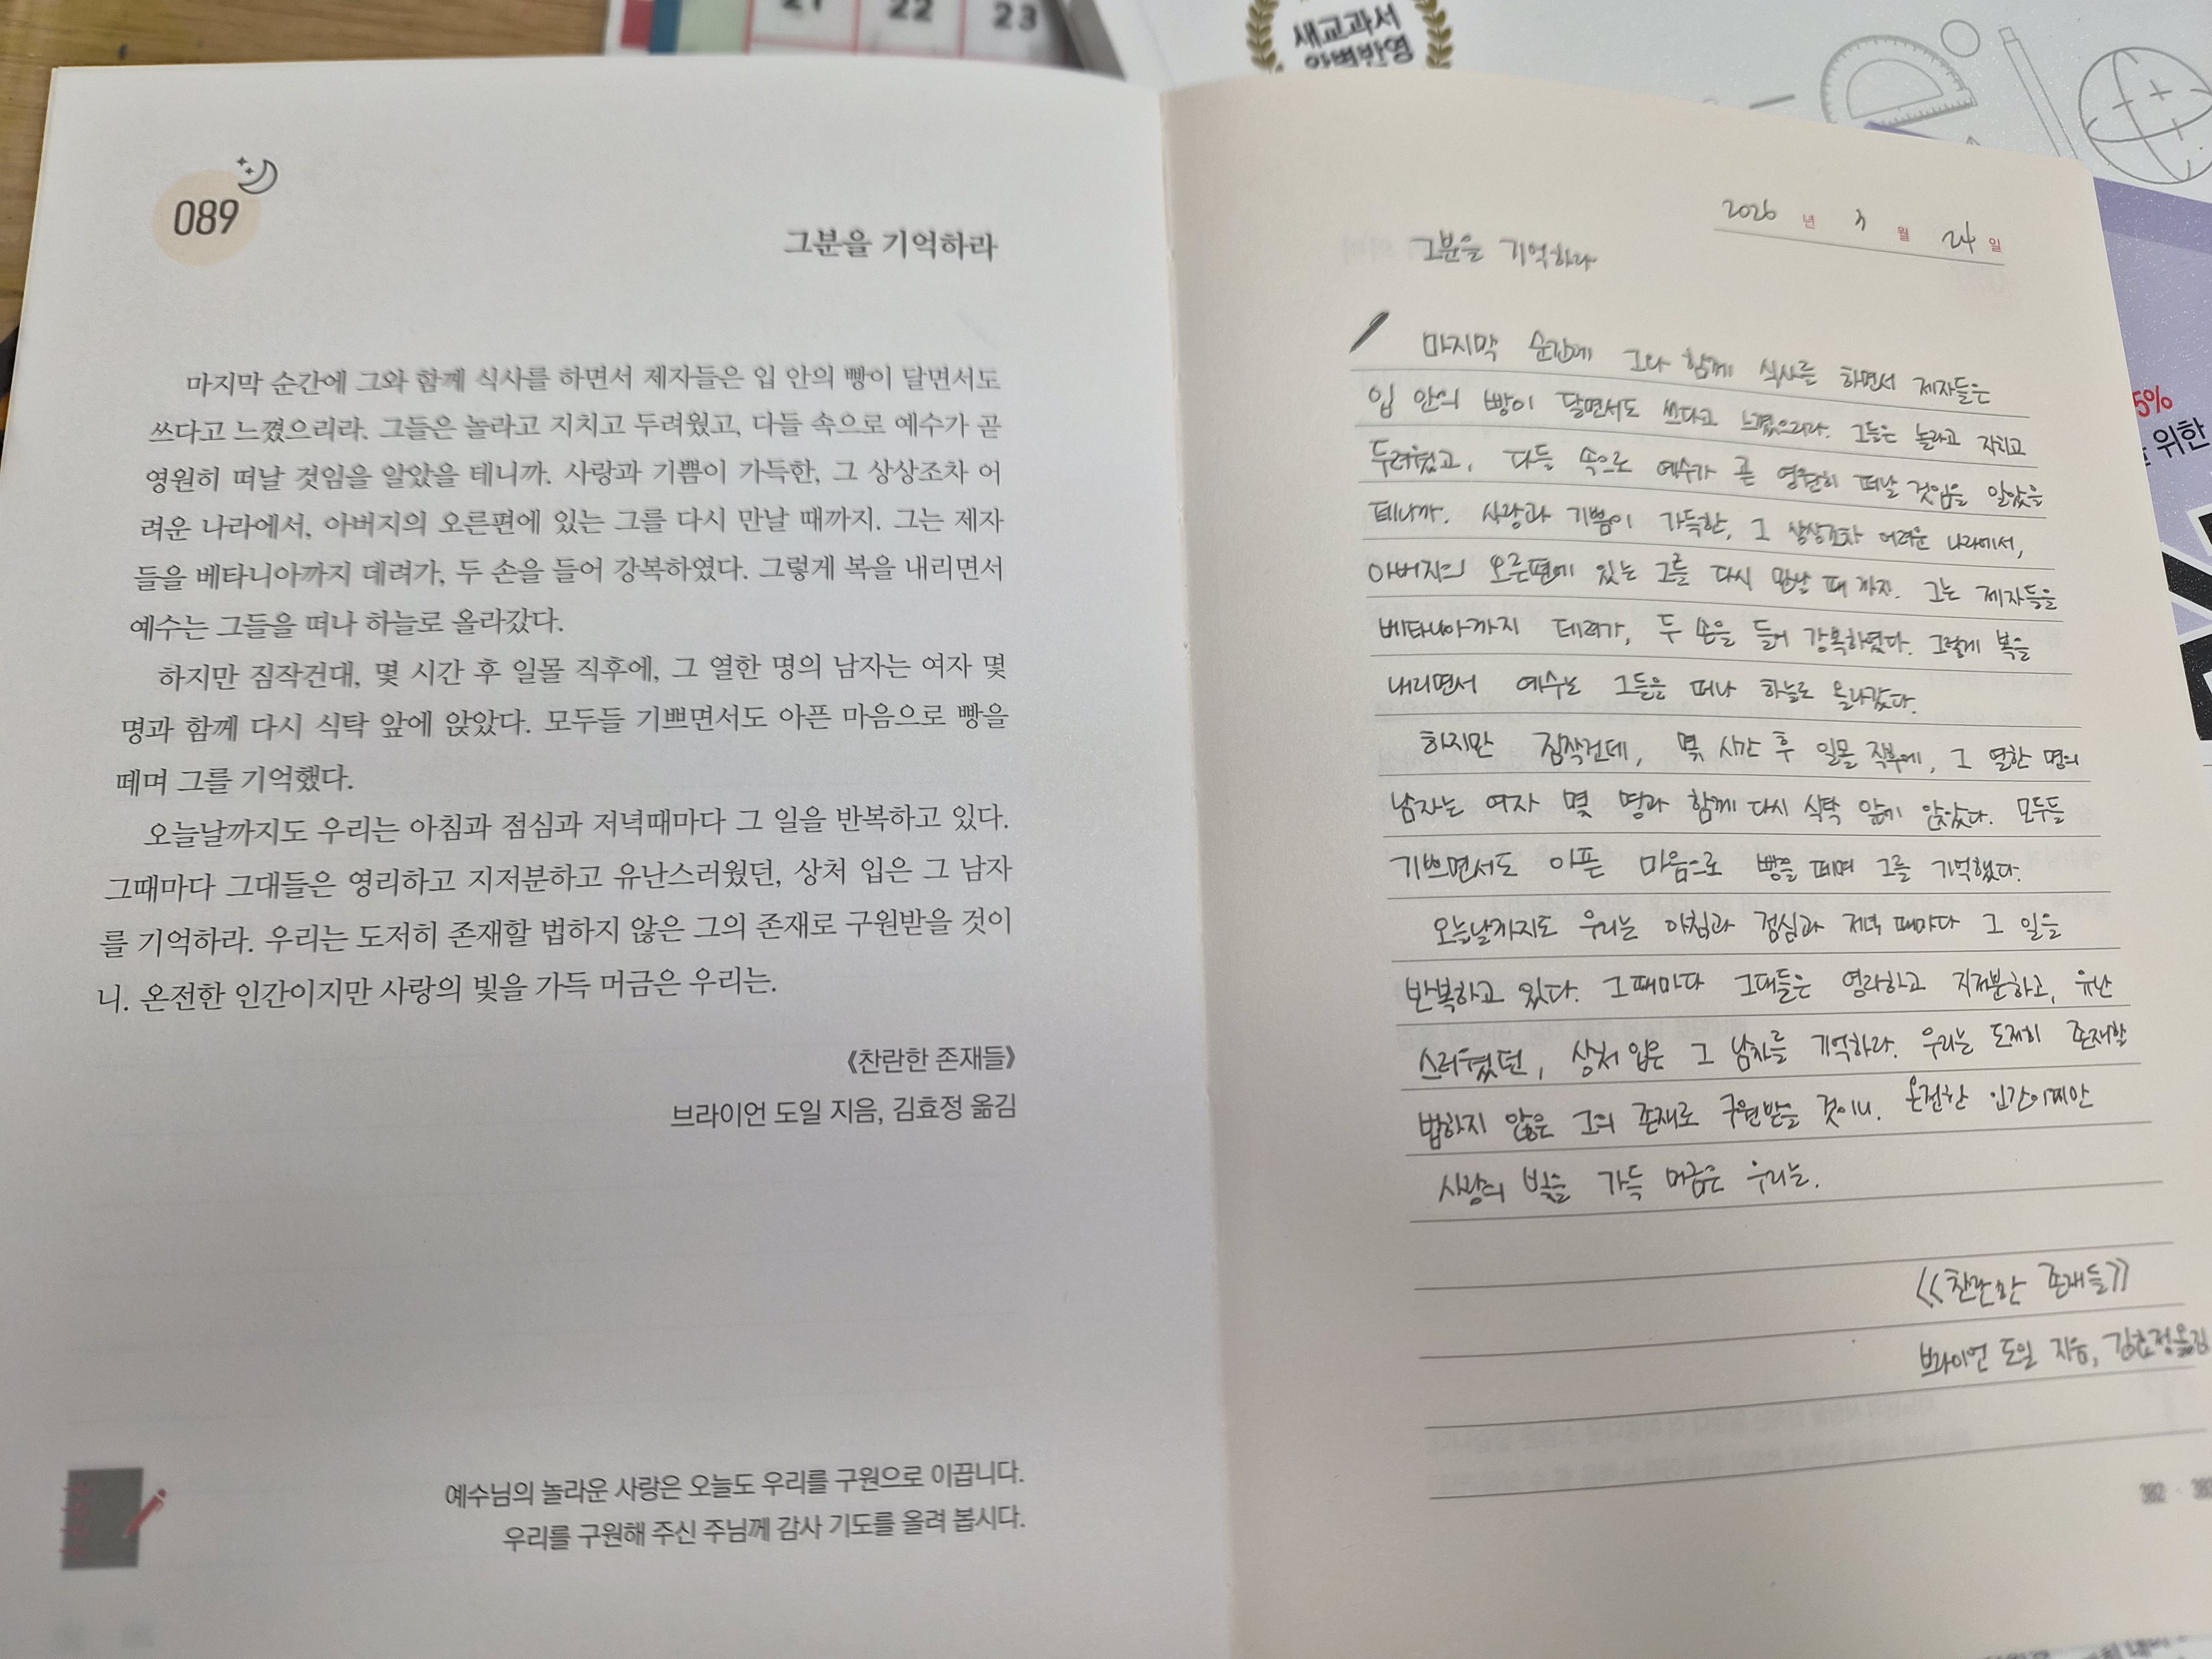 21 22 23
새교과서
완벽반영
5%
위한
089
그분을 기억하라
마지막 순간에 그와 함께 식사를 하면서 제자들은 입 안의 빵이 달면서도
쓰다고 느꼈으리라. 그들은 놀라고 지치고 두려웠고, 다들 속으로 예수가 곧
영원히 떠날 것임을 알았을 테니까. 사랑과 기쁨이 가득한, 그 상상조차 어
려운 나라에서, 아버지의 오른편에 있는 그를 다시 만날 때까지. 그는 제자
들을 베타니아까지 데려가, 두 손을 들어 강복하였다. 그렇게 복을 내리면서
예수는 그들을 떠나 하늘로 올라갔다.
하지만 짐작건대, 몇 시간 후 일몰 직후에, 그 열한 명의 남자는 여자 몇
명과 함께 다시 식탁 앞에 앉았다. 모두들 기쁘면서도 아픈 마음으로 빵을
떼며 그를 기억했다.
오늘날까지도 우리는 아침과 점심과 저녁때마다 그 일을 반복하고 있다.
그때마다 그대들은 영리하고 지저분하고 유난스러웠던, 상처 입은 그 남자
를 기억하라. 우리는 도저히 존재할 법하지 않은 그의 존재로 구원받을 것이
니. 온전한 인간이지만 사랑의 빛을 가득 머금은 우리는.
《찬란한 존재들》
브라이언 도일 지음, 김효정 옮김
예수님의 놀라운 사랑은 오늘도 우리를 구원으로 이끕니다.
우리를 구원해 주신 주님께 감사 기도를 올려 봅시다.
2026 년 3 월 24 일
그분을 기억하라
마지막 순간에 그와 함께 식사를 하면서 제자들은
입 안의 빵이 달면서도 쓰다고 느꼈으리라. 그들은 놀라고 지치고
두려웠고, 다들 속으로 예수가 곧 영원히 떠날 것임을 알았을
테니까. 사랑과 기쁨이 가득한, 그 상상조차 어려운 나라에서,
아버지의 오른편에 있는 그를 다시 만날 때 까지. 그는 제자들을
베타니아까지 데려가, 두 손을 들어 강복하였다. 그렇게 복을
내리면서 예수는 그들을 떠나 하늘로 올라갔다.
하지만 짐작건데, 몇 시간 후 일몰 직후에, 그 열한 명의
남자는 여자 몇 명과 함께 다시 식탁 앞에 앉았다. 모두들
기쁘면서도 아픈 마음으로 빵을 떼며 그를 기억했다.
오늘날까지도 우리는 아침과 점심과 저녁 때마다 그 일을
반복하고 있다. 그때마다 그대들은 영리하고 지저분하고, 유난
스러웠던, 상처 입은 그 남자를 기억하라. 우리는 도저히 존재할
법하지 않은 그의 존재로 구원받을 것이니. 온전한 인간이지만
사랑의 빛을 가득 머금은 우리는.
《찬란한 존재들》
브라이언 도일 지음, 김효정 옮김
382